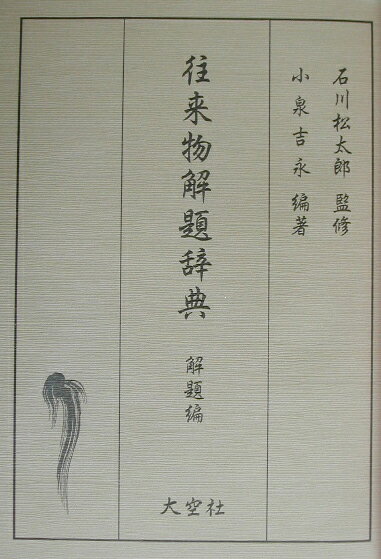 石川松太郎 監修
小泉吉永 編著
往来物解題辞典
解題編
大空社